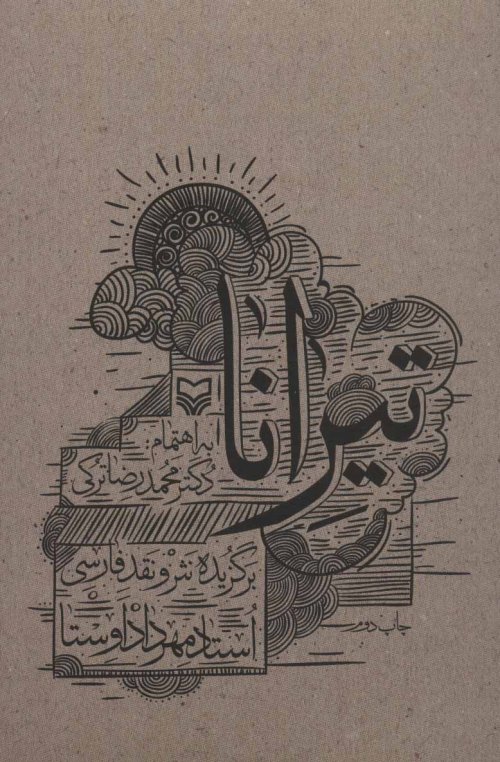 تیرانا
به اهتمام:
دکتر محمدرضا ترکی
برگزیده نثر و نقد فارسی
اُستاد مهرداد اوستا
چاپ دوم